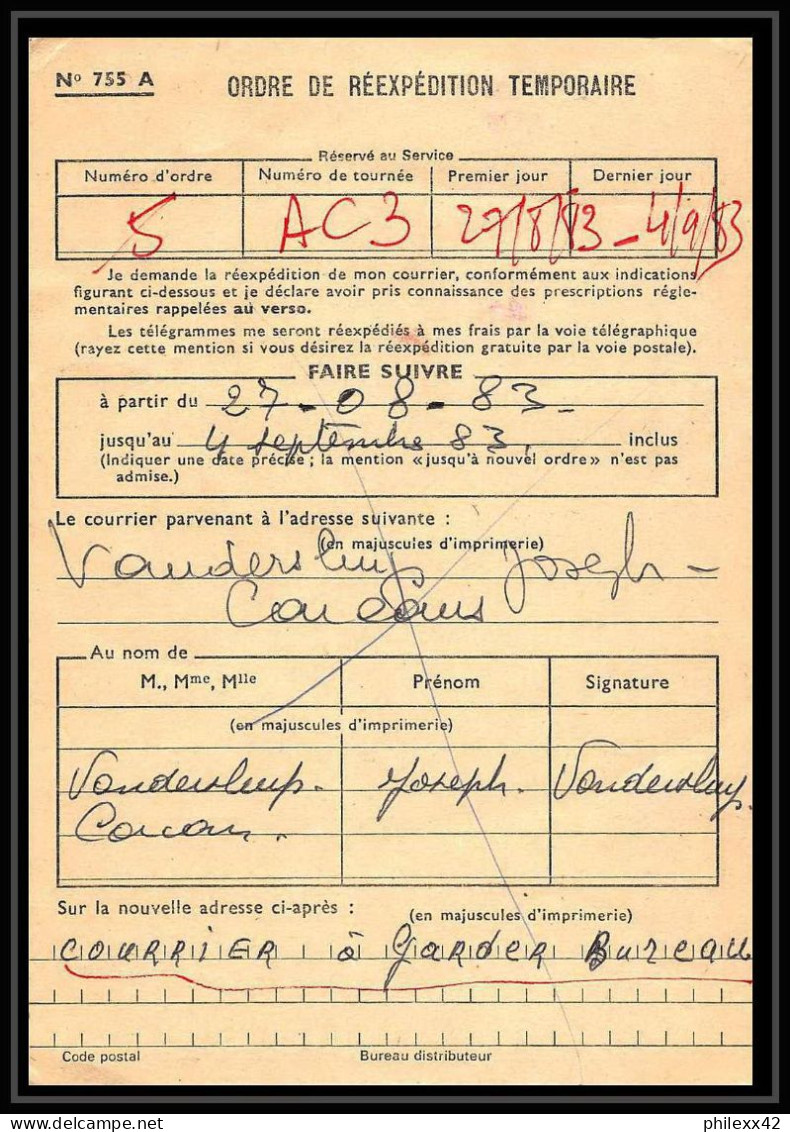 N° 755 A
ORDRE DE RÉEXPÉDITION TEMPORAIRE
Réservé au Service
Numéro d'ordre Numéro de tournée Premier jour Dernier jour
5 AC3 27/8/83 - 4/9/83
Je demande la réexpédition de mon courrier, conformément aux indications
figurant ci-dessous et je déclare avoir pris connaissance des prescriptions régle-
mentaires rappelées au verso.
Les télégrammes me seront réexpédiés à mes frais par la voie télégraphique
(rayez cette mention si vous désirez la réexpédition gratuite par la voie postale).
FAIRE SUIVRE
à partir du 27-08-83-
jusqu'au 4 septembre 83. inclus
(Indiquer une date précise ; la mention «jusqu'à nouvel ordre» n'est pas
admise.)
Le courrier parvenant à l'adresse suivante :
(en majuscules d'imprimerie)
Vandersluys Joseph -
Au nom de
M., Mme, Mlle Prénom Signature
(en majuscules d'imprimerie)
Vandersluys. Joseph. Vandersluys.
Sur la nouvelle adresse ci-après : (en majuscules d'imprimerie)
COURRIER à GARDER BUREAU
Code postal Bureau distributeur
philexx42